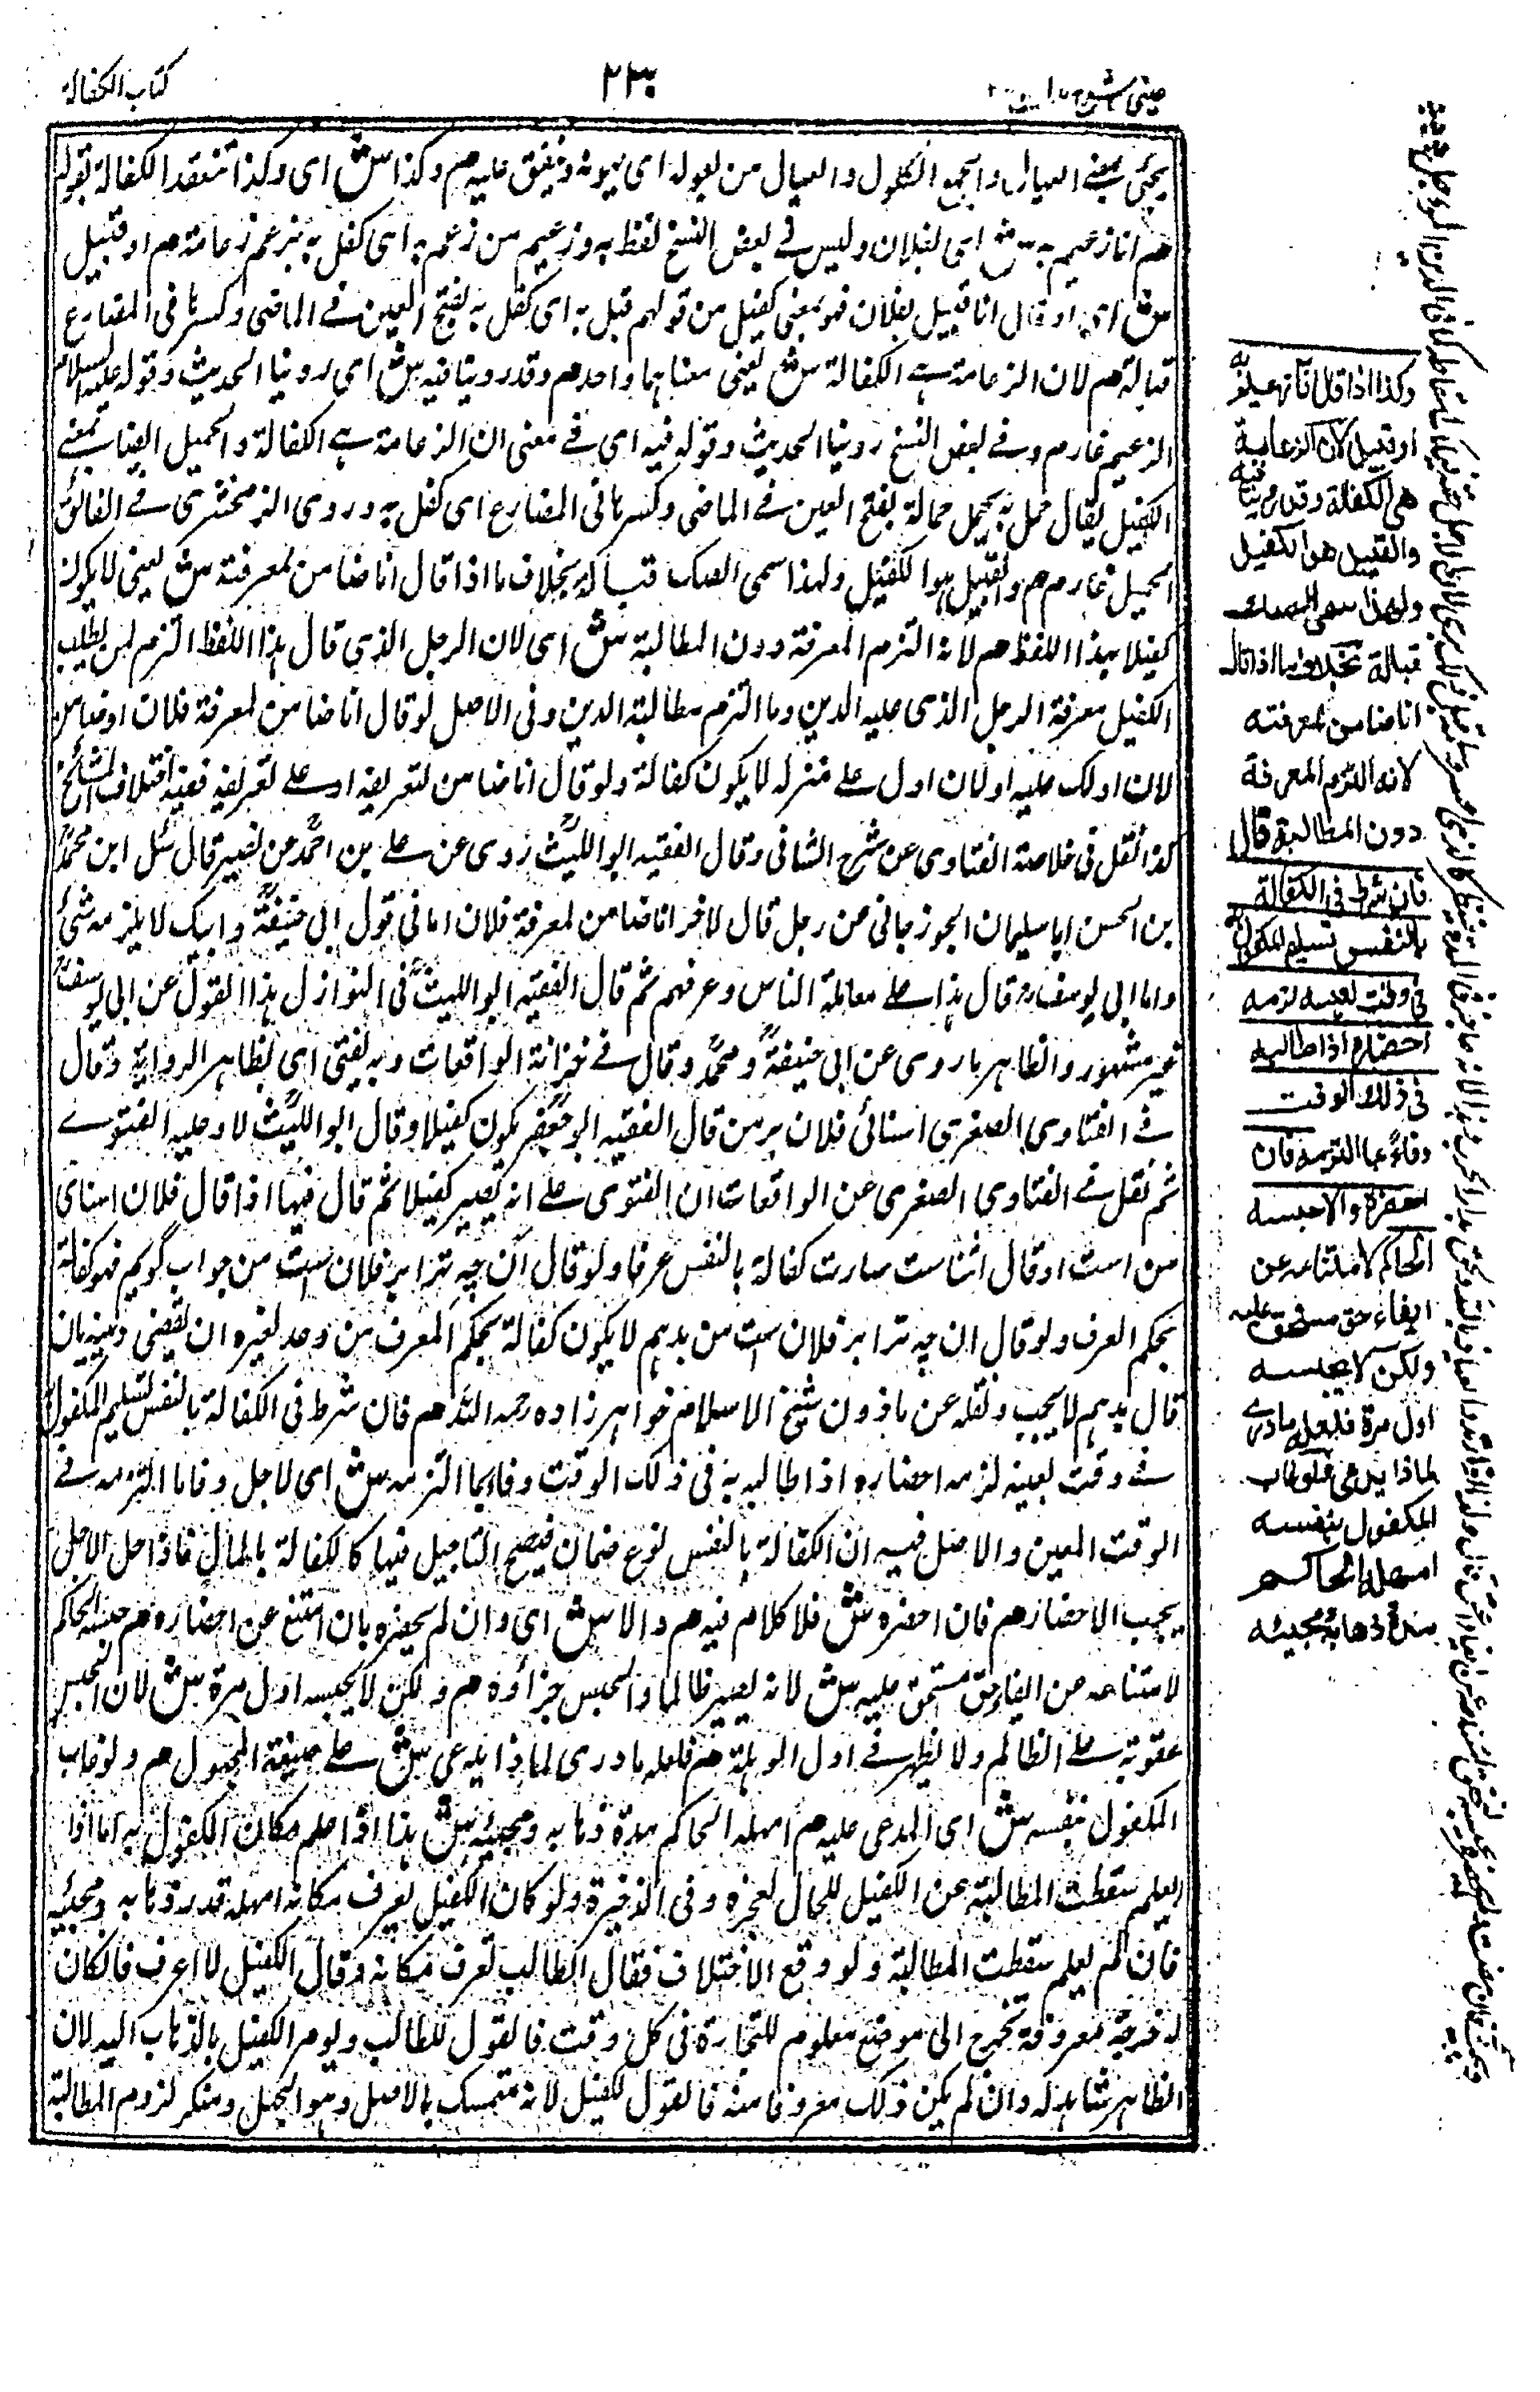 كتاب الكفالة
٢٣٠
عيني شرح
يجئ بمعنى العيال واجمع الكلول والعيال من يعوله اى يمونه وينفق عليه هم وكذا ش اى وكذا تنعقد الكفالة بقوله
هم انا زعيم به ش اى بفلان وليس فے بعض النسخ لفظ به وزعيم من زعم به اى كفل به يزعم زعامة هم او قبيل
ش اى او قال انا قبيل بفلان فهو بمعنى كفيل من قولهم قبل به اى كفل به بفتح العين فے الماضى وكسرها فى المضارع
قبالة هم لان الزعامة هے الكفالة ش يعنى معناهما واحد هم وقد روينا فيه ش اى روينا الحديث وقوله عليه السلام
الزعيم غارم وفے بعض النسخ روينا الحديث وقوله فيه اى فے معنى ان الزعامة هے الكفالة والحميل ايضا بمعنے
الكفيل يقال حمل به يحمل حمالة بفتح العين فے الماضى وكسرها فى المضارع اى كفل به وروى الزمخشرى فے الفائق
الحميل غارم هم والقبيل هو الكفيل ولهذا سمى الصك قبالة بخلاف ما اذا قال انا ضامن لمعرفته ش يعنى لا يكون
كفيلا بهذا اللفظ هم لانه التزم المعرفة دون المطالبة ش اى لان الرجل الذى قال هذا اللفظ التزم لمن يطلب
الكفيل معرفة الرجل الذى عليه الدين وما التزم مطالبة الدين وفى الاصل لو قال انا ضامن لمعرفة فلان او ضامن
لان ادلك عليه او لان ادل علے منزله لا يكون كفالة ولو قال انا ضامن لتعريفه او علے تعريفه ففيه اختلاف المشائخ
كذا نقل فى خلاصة الفتاوى عن شرح الشافى وقال الفقيه ابو الليث روى عن علے بن احمد عن نصير قال سئل ابن محمد
بن الحسن ابا سليمان الجوزجانى عن رجل قال لاخر انا ضامن لمعرفة فلان اما فى قول ابى حنيفة وابيك لا يلزمه شئ
واما ابى يوسف قال هذا علے معاملة الناس وعرفهم ثم قال الفقيه ابو الليث فى النوازل هذا القول عن ابى يوسف
غير مشهور والظاهر ما روى عن ابى حنيفة ومحمد وقال فے خزانة الواقعات وبه يفتى اى بظاهر الرواية وقال
فے الفتاوى الصغرى اسنائى فلان برمن قال الفقيه ابو جعفر يكون كفيلا وقال ابو الليث لا وعليه الفتوے
ثم نقل فے الفتاوى الصغرى عن الواقعات ان الفتوى علے انه يصير كفيلا ثم قال فيها اذا قال فلان اسناى
من است او قال اشناست صارت كفالة بالنفس عرفا ولو قال آن چه ترا بر فلان ست من جواب گويم فهو كفالة
بحكم العرف ولو قال ان چه ترا بر فلان ست من بدهم لا يكون كفالة بحكم العرف من وعد لغيره ان يقضى دينه بان
قال بدهم لا يجب ونقله عن ماذون شيخ الاسلام خواهر زاده رحمه الله هم فان شرط فى الكفالة بالنفس تسليم المكفول
فے وقت بعينه لزمه احضاره اذا طالبه به فى ذلك الوقت وفاء بما التزمه ش اى لاجل وفاء ما التزمه فے
الوقت المعين والاصل فيه ان الكفالة بالنفس نوع ضمان فيصح التاجيل فيها كالكفالة بالمال فاذا حل الاجل
يجب الاحضار هم فان احضره ش فلا كلام فيه هم والا ش اى وان لم يحضره بان امتنع عن احضاره هم حبسه الحاكم
لامتناعه عن ايفاء حق مستحق عليه ش لانه يصير ظالما والحبس جزاؤه هم ولكن لا يحبسه اول مرة ش لان الحبس
عقوبة علے الظالم ولا يظهر فے اول الوهلة هم فلعله ما درى لماذا يدعى ش علے صيغة المجهول هم ولو غاب
المكفول بنفسه ش اى المدعى عليه هم امهله الحاكم مدة ذهابه ومجيئه ش هذا اذا علم مكان المكفول به اما اذا
لم يعلم سقطت المطالبة عن الكفيل للحال لعجزه وفى الذخيرة ولو كان الكفيل يعرف مكانه امهله قدر ذهابه ومجيئه
فان لم يعلم سقطت المطالبة ولو وقع الاختلاف فقال الطالب تعرف مكانه وقال الكفيل لا اعرف فان كان
له خرجة معروفة يخرج الى موضع معلوم للتجارة فى كل وقت فالقول للطالب ويومر الكفيل بالذهاب اليه لان
الظاهر شاهد له وان لم يكن ذلك معروفا منه فالقول للكفيل لانه متمسك بالاصل وهو الجهل ومنكر لزوم المطالبة
وكذا اذا قال انا زعيم به
او قبيل لان الزعامة
هى الكفالة وقد روينا فيه
والقبيل هو الكفيل
ولهذا سمى الصك
قبالة بخلاف ما اذا قال
انا ضامن لمعرفته
لانه التزم المعرفة
دون المطالبة قال
فان شرط فى الكفالة
بالنفس تسليم المكفول به
فى وقت بعينه لزمه
احضاره اذا طالبه
فى ذلك الوقت
وفاءً بما التزمه فان
احضره والا حبسه
الحاكم لامتناعه عن
ايفاء حق مستحق عليه
ولكن لا يحبسه
اول مرة فلعله ما درى
لماذا يدعى فلو غاب
المكفول بنفسه
امهله الحاكم
مدة ذهابه ومجيئه